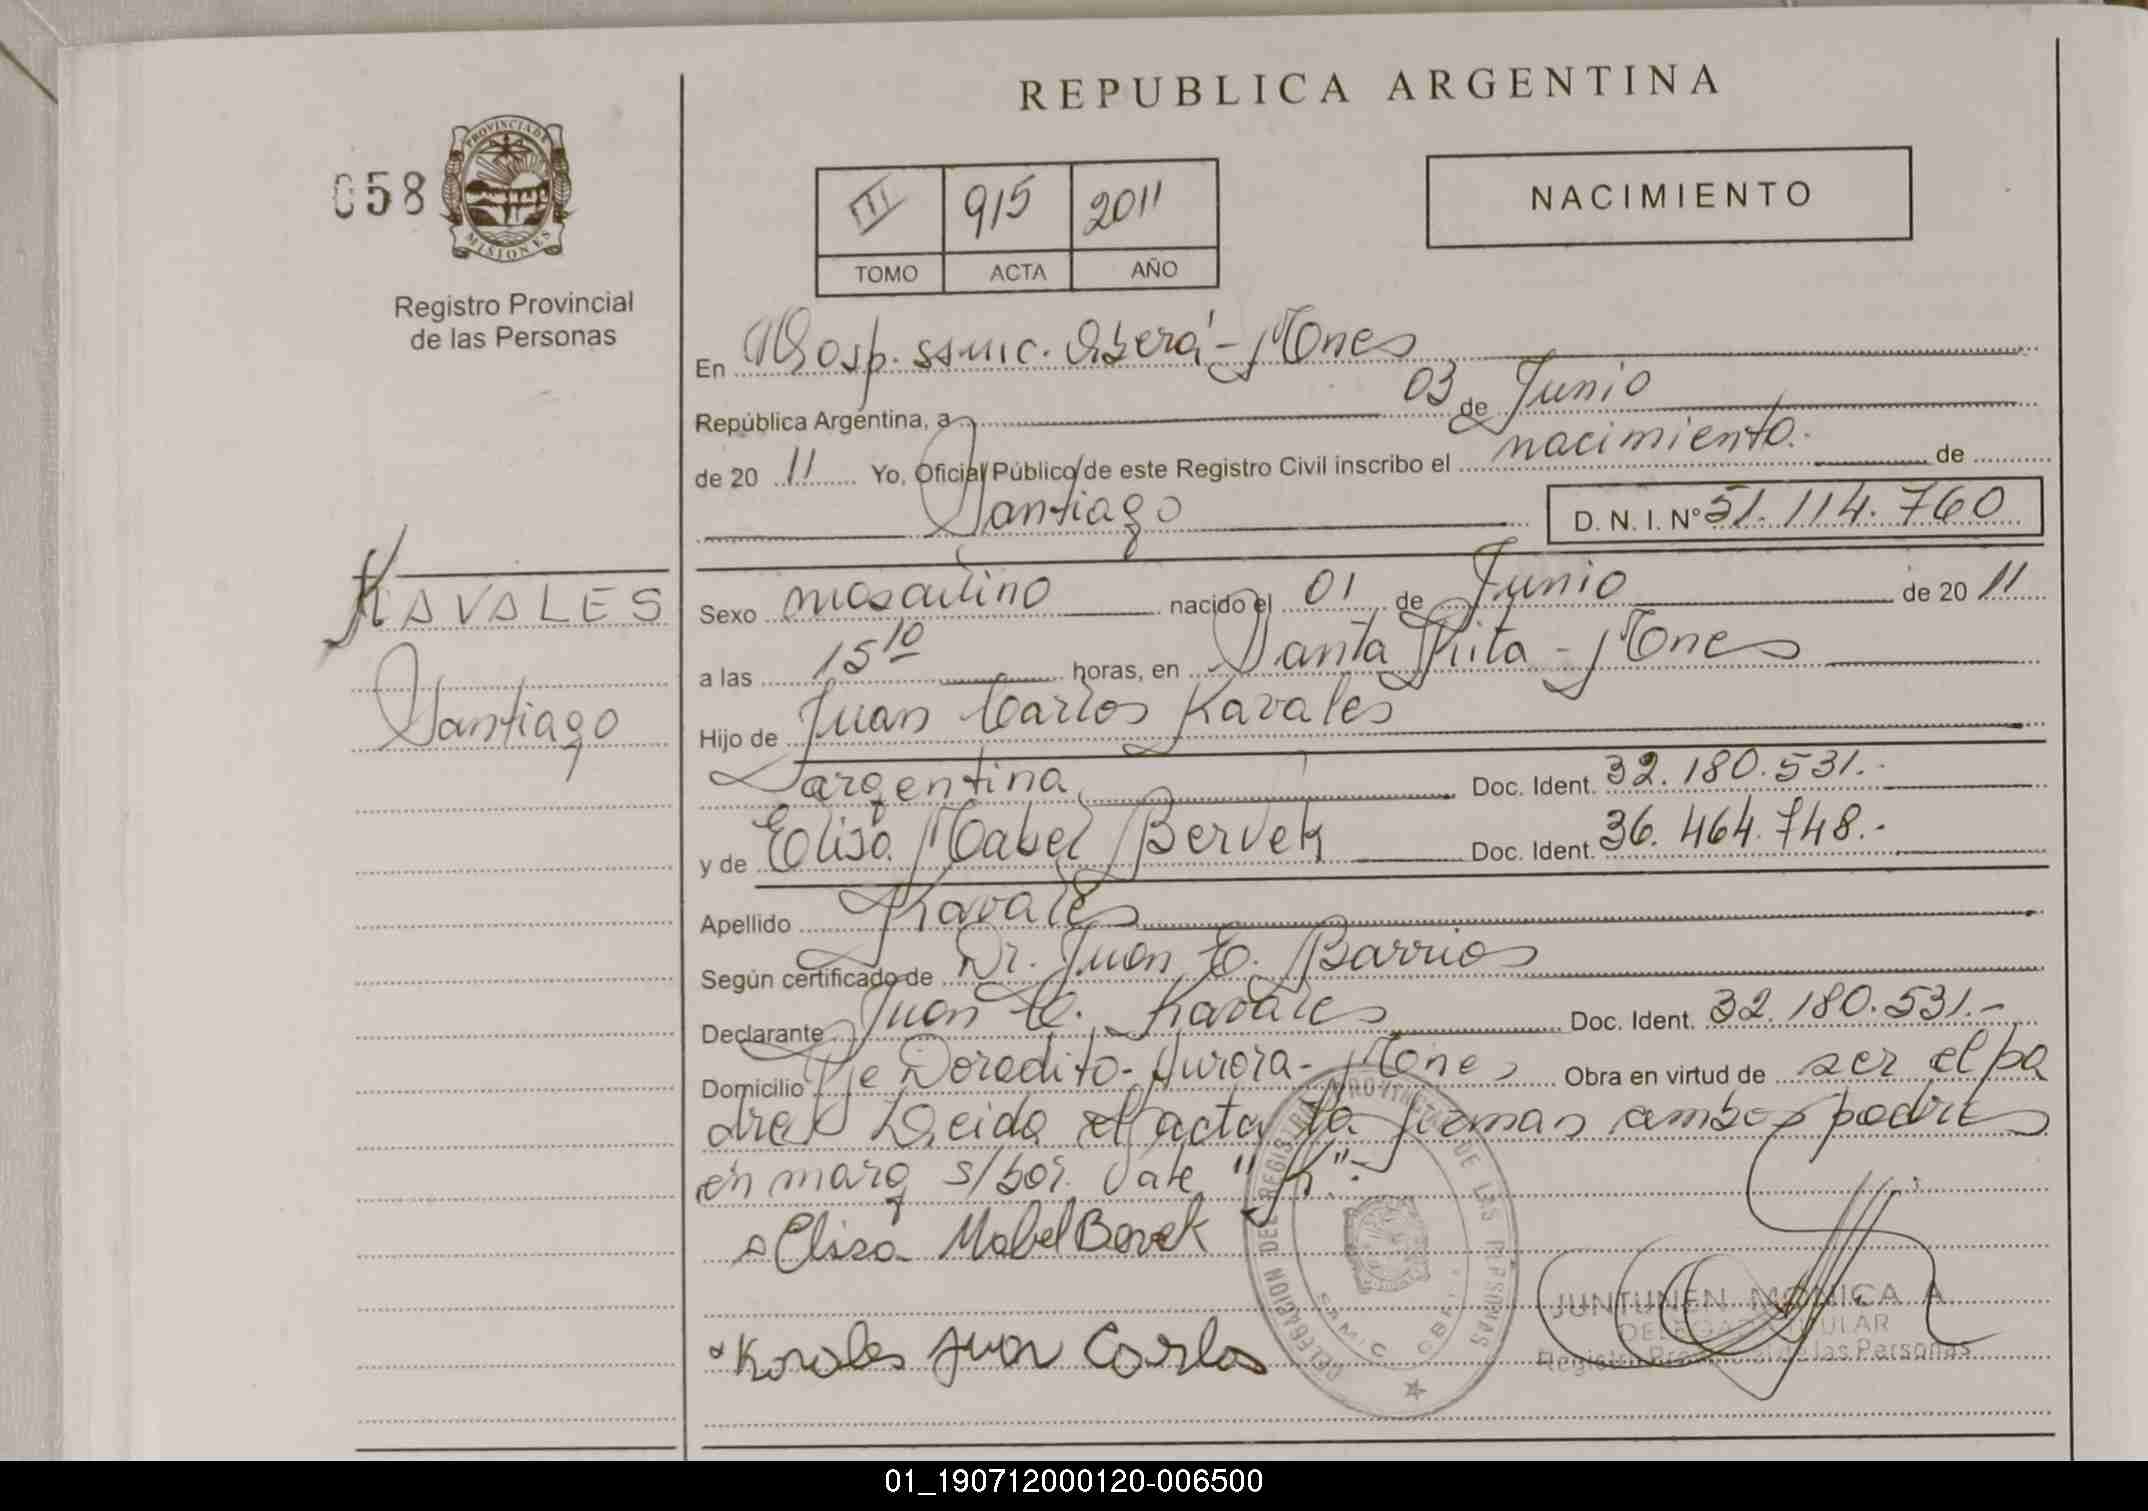 REPUBLICA ARGENTINA
058
PROVINCIA DE
MISIONES
Registro Provincial
de las Personas
III 915 2011
TOMO ACTA AÑO
NACIMIENTO
En Hosp. SAMIC. Oberá - Mnes
República Argentina, a 03 de Junio
de 20 11 Yo, Oficial Público de este Registro Civil inscribo el nacimiento. de
Santiago D. N. I. Nº 51.114.760
KAVALES
Santiago
Sexo masculino nacido el 01 de Junio de 20 11
a las 15 10 horas, en Santa Rita - Mnes
Hijo de Juan Carlos Kavales
argentina Doc. Ident. 32.180.531.-
y de Elisa Mabel Bervek Doc. Ident. 36.464.748.-
Apellido Kavales
Según certificado de Dr. Juan C. Barrios
Declarante Juan C. Kavales Doc. Ident. 32.180.531.-
Domicilio Pje Doradito - Aurora - Mnes Obra en virtud de ser el pa
dre Leida el acta la firman ambos padres
en marg s/bor. Vale "K".-
Elisa Mabel Bervek
Kavales Juan Carlos
DELEGACION DEL REGISTRO PROVINCIAL DE LAS PERSONAS
SAMIC OBERA
JUNTUNEN MONICA A
DELEGADA TITULAR
Registro Provincial de las Personas
01_190712000120-006500